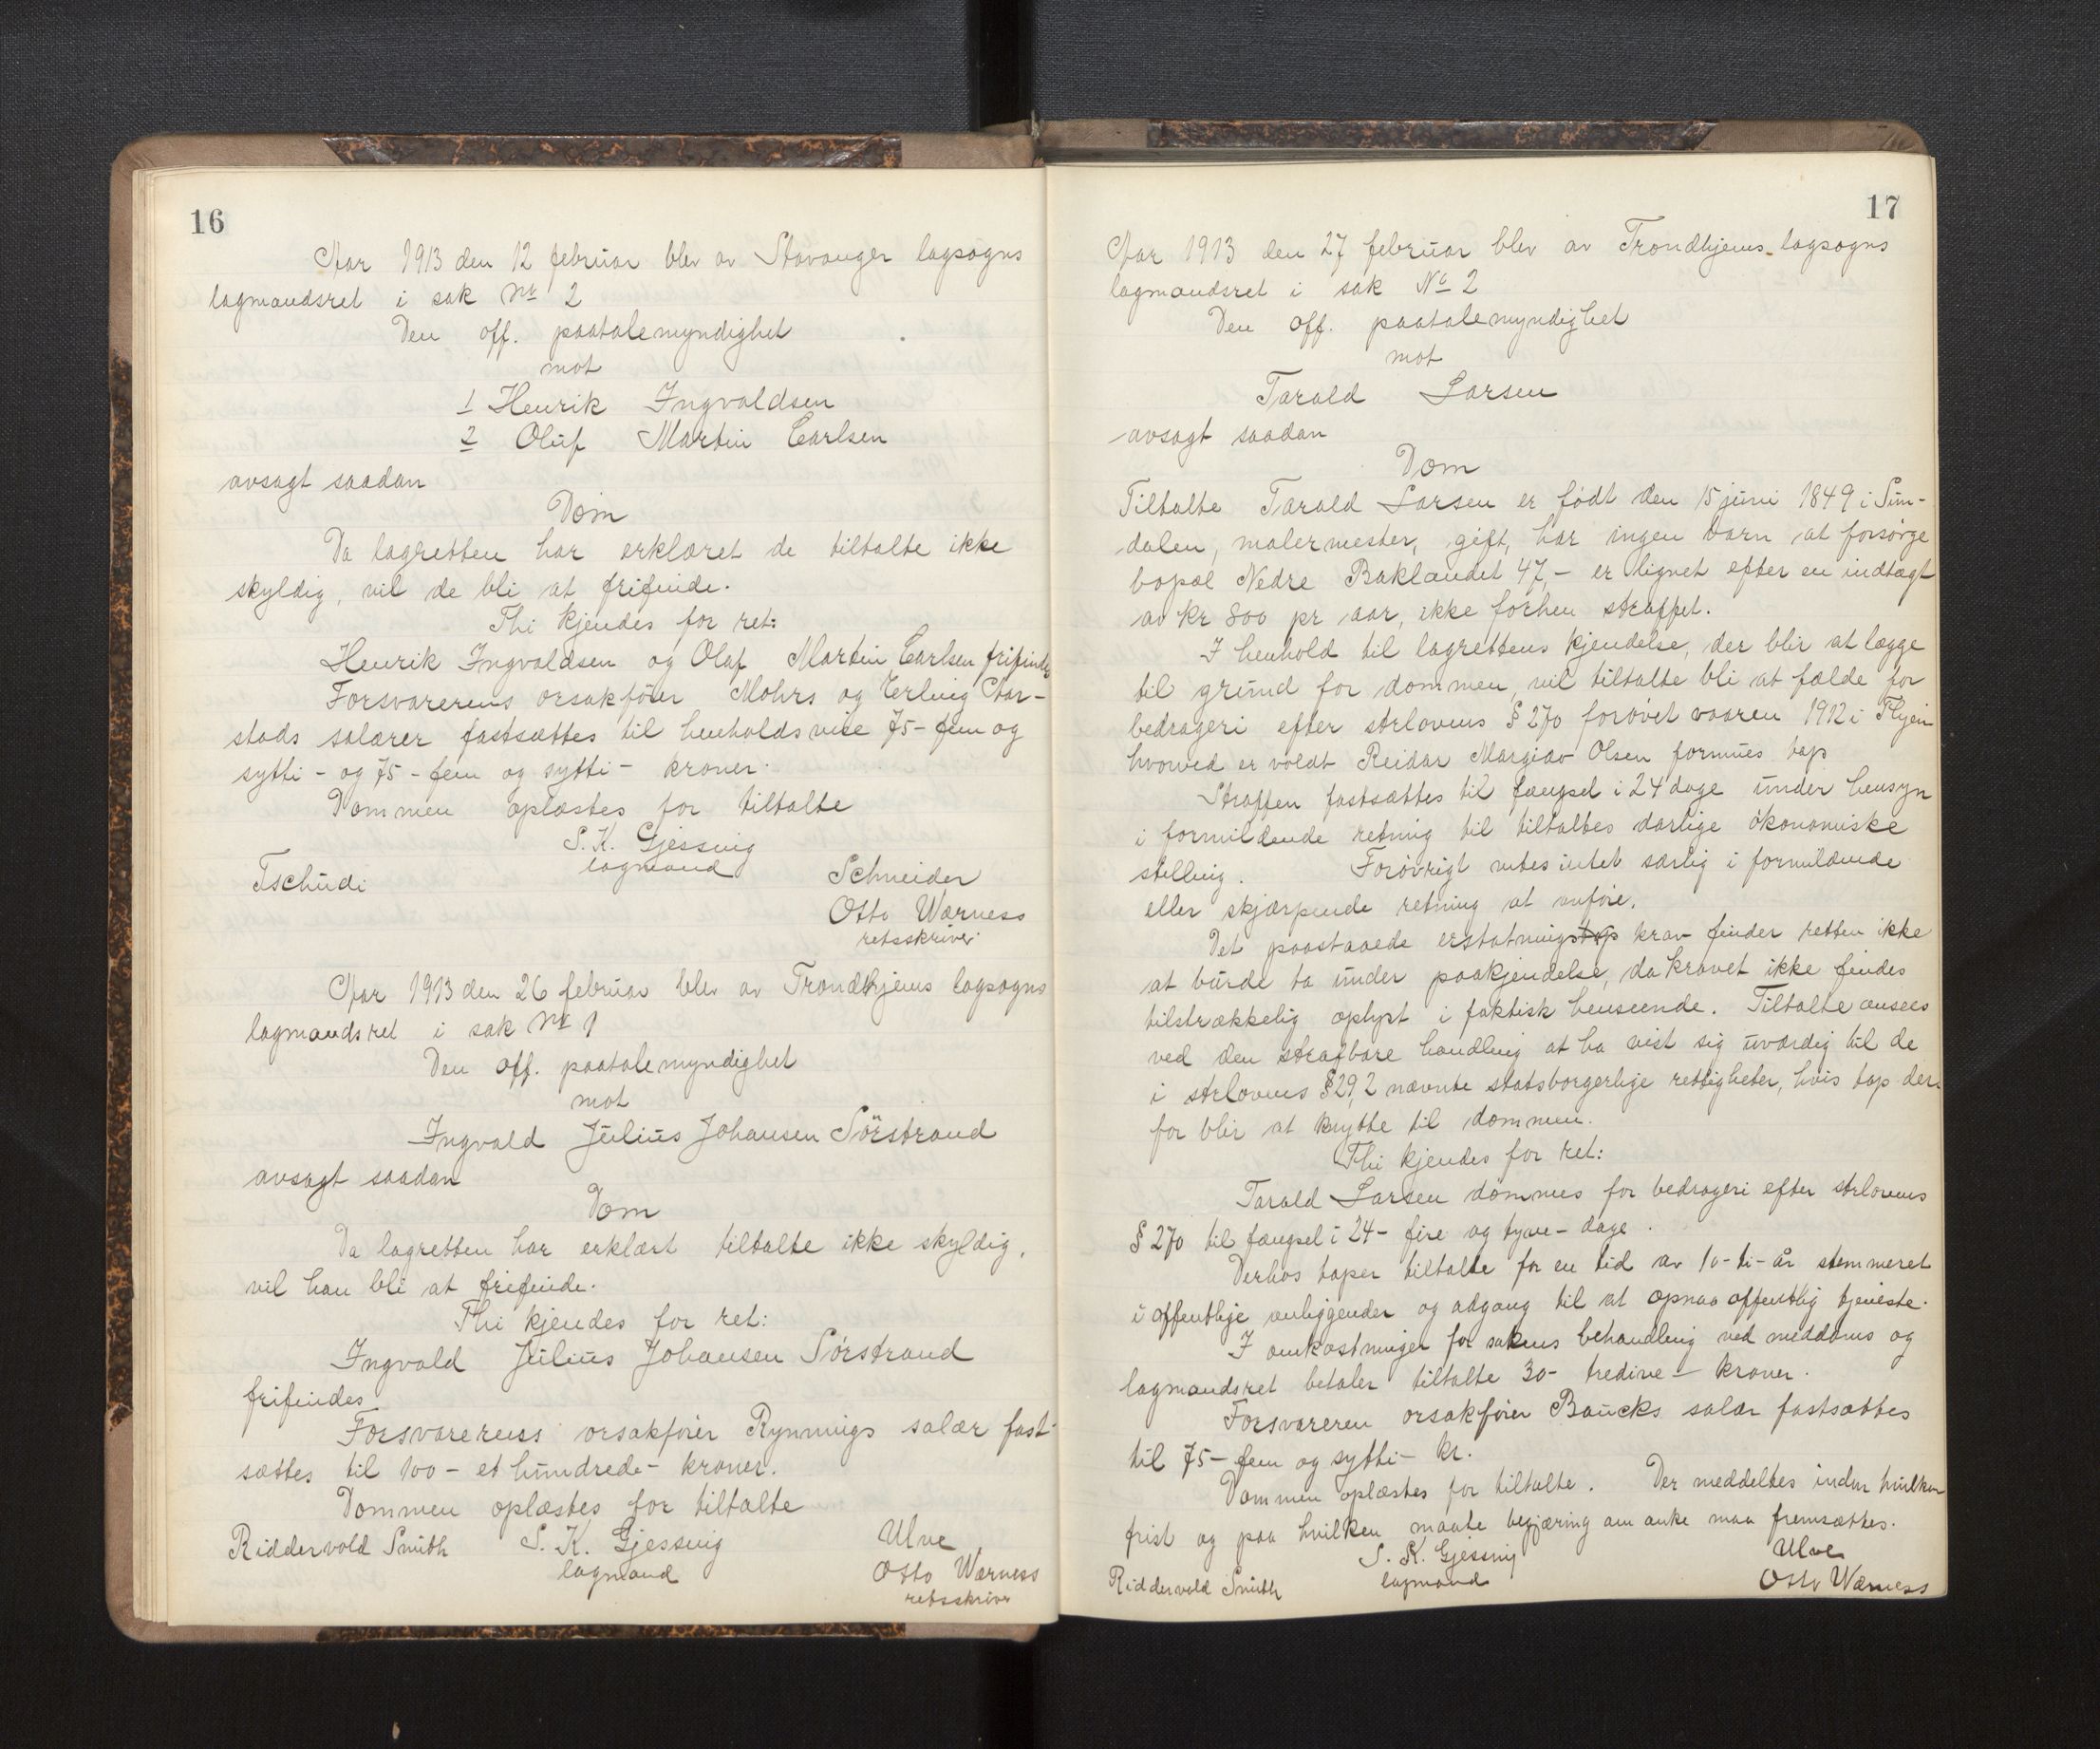 16
Aar 1913 den 12 februar blev av Stavanger lagsogns
lagmandsret i sak Nr 2
Den off. paatalemyndighet
mot
1 Henrik Ingvaldsen
2 Oluf Martin Carlsen
avsagt saadan
Dom
Da lagretten har erklæret de tiltalte ikke
skyldig, vil de bli at frifinde.
Thi kjendes for ret:
Henrik Ingvaldsen og Olaf Martin Carlsen frifindes
Forsvarerens orsakfører Mohrs og Erling Aar-
stads salærer fastsættes til henholdsvise 75 - fem og
sytti - og 75 - fem og sytti - kroner.
Dommen oplæstes for tiltalte
S. K. Gjessing
lagmand
Tschudi
Schneider
Otto Wærness
retsskriver
Aar 1913 den 26 februar blev av Trondhjems lagsogns
lagmandsret i sak Nr 1
Den off. paatalemyndighet
mot
Ingvald Julius Johansen Sörstrand
avsagt saadan
Dom
Da lagretten har erklært tiltalte ikke skyldig,
vil han bli at frifinde.
Thi kjendes for ret:
Ingvald Julius Johansen Sörstrand
frifindes
Forsvarerens orsakfører Rynnings salær fast-
sættes til 100 - et hundrede - kroner.
Dommen oplæstes for tiltalte
Riddervold Smith S. K. Gjessing Ulve
lagmand Otto Wærness
retsskriver
17
Aar 1913 den 27 februar blev av Trondhjems lagsogns
lagmandsret i sak No 2
Den off. paatalemyndighet
mot
Tarald Larsen
avsagt saadan
Dom
Tiltalte Tarald Larsen er født den 15 juni 1849 i Sun-
dalen, malermester, gift, har ingen barn at forsörge
bopæl Nedre Baklandet 47, - er lignet efter en indtægt
av kr 800 pr aar, ikke forhen straffet.
I henhold til lagrettens kjendelse, der blir at lægge
til grund for dommen, vil tiltalte bli at fælde for
bedrageri efter strlovens § 270 forøvet vaaren 1912 i
hvorved er voldt Reidar Margido Olsen formues tap
Straffen fastsættes til fængsel i 24 dage under hensyn
i formildende retning til tiltaltes darlige ökonomiske
stilling. Forövrigt vites intet særlig i formildende
eller skjærpende retning at anføre.
Det paastaaede erstatningstap krav finder retten ikke
at burde ta under paakjendelse, da kravet ikke findes
tilstrækkelig oplyst i faktisk henseende. Tiltalte ansees
ved den strafbare handling at ha vist sig uværdig til de
i strlovens § 29, 2 nævnte statsborgerlige rettigheter, hvis tap der-
for blir at knytte til dommen.
Thi kjendes for ret:
Tarald Larsen dömmes for bedrageri efter strlovens
§ 270 til fængsel i 24 - fire og tyve - dage.
Derhos taper tiltalte for en tid av 10 - ti - år stemmeret
i offentlige anliggender og adgang til at opnaa offentlig tjeneste.
I omkostninger for sakens behandling ved meddoms og
lagmandsret betaler tiltalte 30 - tredive - kroner.
Forsvareren orsakfører Baucks salær fastsættes
til 75 - fem og sytti - kr.
Dommen oplæstes for tiltalte. Der meddeltes inden hvilken
frist og paa hvilken maate begjæring om anke maa fremsættes.
S. K. Gjessing Ulve
Riddervold Smith lagmand Otto Wærness